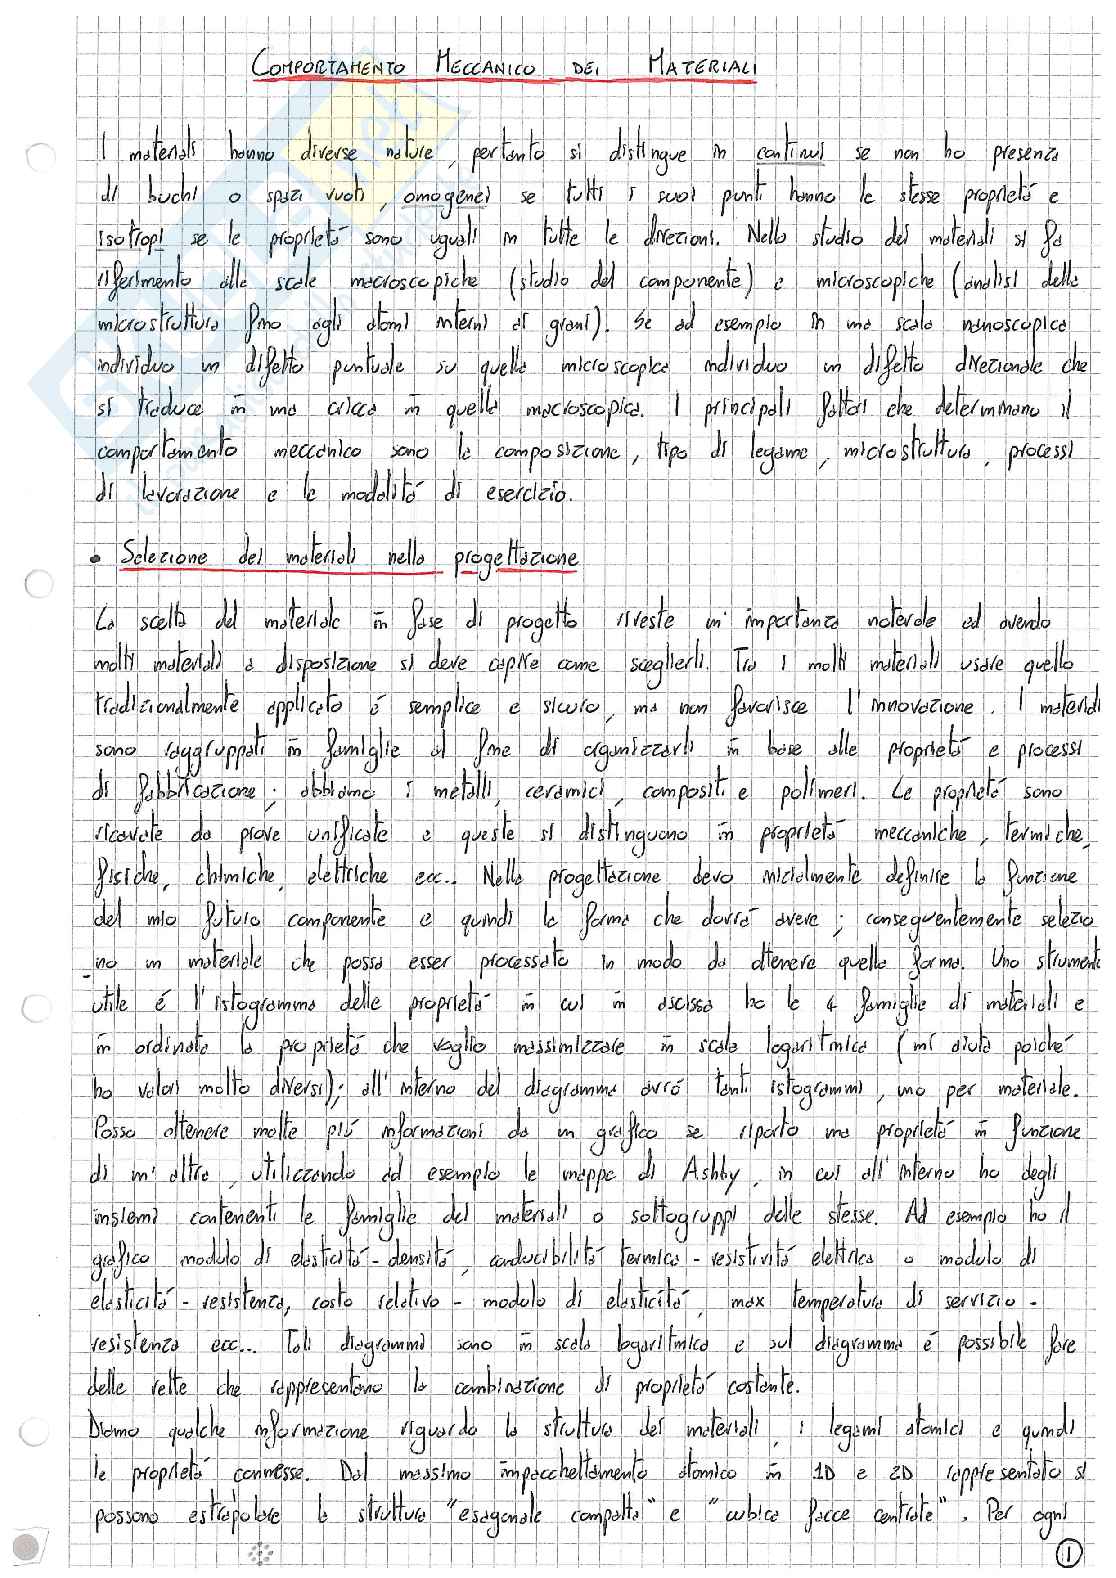 COMPORTAMENTO MECCANICO DEI MATERIALI
I materiali hanno diverse nature, pertanto si distingue in continui se non ho presenza
di buchi o spazi vuoti, omogenei se tutti i suoi punti hanno le stesse proprietá e
isotropi se le proprietá sono uguali in tutte le direzioni. Nello studio dei materiali si fa
riferimento alle scale macroscopiche (studio del componente) e microscopiche (analisi della
microstruttura fino agli atomi interni ai grani). Se ad esempio in una scala nanoscopica
individuo un difetto puntuale su quella microscopica individuo un difetto direzionale che
si traduce in una cricca in quella macroscopica. I principali fattori che determinano il
comportamento meccanico sono la composizione, tipo di legame, microstruttura, processi
di lavorazione e la modalitá di esercizio.
• Selezione dei materiali nella progettazione
La scelta del materiale in fase di progetto riveste un'importanza notevole ed avendo
molti materiali a disposizione si deve capire come sceglierli. Tra i molti materiali usare quello
tradizionalmente applicato é semplice e sicuro, ma non favorisce l'innovazione. I materiali
sono raggruppati in famiglie al fine di organizzarli in base alle proprietá e processi
di fabbricazione; abbiamo i metalli, ceramici, compositi e polimeri. Le proprietá sono
ricavate da prove unificate e queste si distinguono in proprietá meccaniche, termiche,
fisiche, chimiche, elettriche ecc... Nella progettazione devo inizialmente definire la funzione
del mio futuro componente e quindi la forma che dovrá avere; conseguentemente selezio
-no un materiale che possa esser processato in modo da ottenere quella forma. Uno strumento
utile é l'istogramma delle proprietá in cui in ascissa ho le 4 famiglie di materiali e
in ordinata la proprietá che voglio massimizzare in scala logaritmica (mi aiuta poiché
ho valori molto diversi); all'interno del diagramma avró tanti istogrammi, uno per materiale.
Posso ottenere molte piú informazioni da un grafico se riporto una proprietá in funzione
di un'altra, utilizzando ad esempio le mappe di Ashby, in cui all'interno ho degli
insiemi contenenti le famiglie dei materiali o sottogruppi delle stesse. Ad esempio ho il
grafico modulo di elasticitá - densitá, conducibilitá termica - resistivitá elettrica o modulo di
elasticitá - resistenza, costo relativo - modulo di elasticitá, max temperatura di servizio -
resistenza ecc... Tali diagrammi sono in scala logaritmica e sul diagramma é possibile fare
delle rette che rappresentano la combinazione di proprietá costante.
Diamo qualche informazione riguardo la struttura dei materiali, i legami atomici e quindi
le proprietá connesse. Dal massimo impacchettamento atomico in 1D e 2D rappresentato si
possono estrapolare la struttura "esagonale compatta" e "cubica facce centrate". Per ogni
1